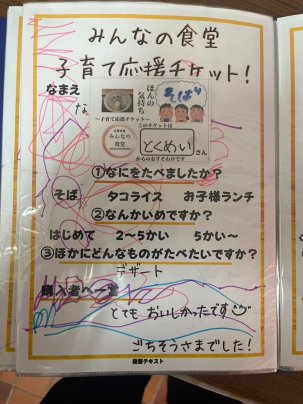 みんなの食堂
子育て応援チケット!
なまえ
な
ほんの
気持ち
~子育て応援チケット~
このチケットは
みんなの
食堂
とくめい さん
からのおすそわけです
①なにをたべましたか?
そば タコライス お子様ランチ
②なんかいめですか?
はじめて 2~5かい 5かい~
③ほかにどんなものがたべたいですか?
デザート
購入者へ一言
とても おいしかったです
ごちそうさまでした!
段落テキスト